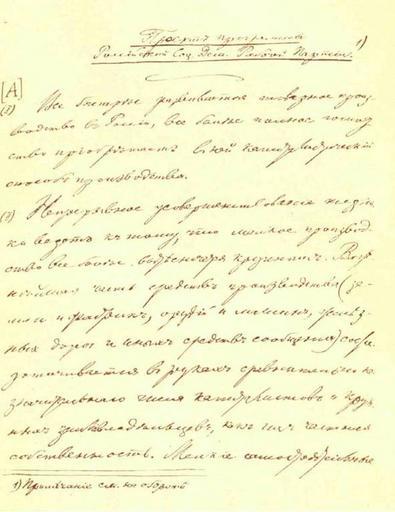 Проектъ программы
Россійской Соц. Дем. Рабочей Партіи. 1)
[А]
(I) Все быстрѣе развивается товарное произ-
водство въ Россіи, все болѣе полное господ-
ство пріобрѣтаетъ въ ней капиталистическій
способъ производства.
(II) Непрерывное усовершенствованіе техни-
ки ведетъ къ тому, что мелкое производ-
ство все болѣе вытѣсняется крупнымъ. Важ-
нѣйшая часть средствъ производства (зе-
мли и фабрикъ, орудій и машинъ, желѣз-
ныхъ дорогъ и иныхъ средствъ сообщенія) сосре-
доточивается въ рукахъ сравнительно не-
значительнаго числа капиталистовъ и круп-
ныхъ землевладѣльцевъ, какъ ихъ частная
собственность. Мелкіе самостоятельные
1) Примѣчаніе см. на оборотѣ